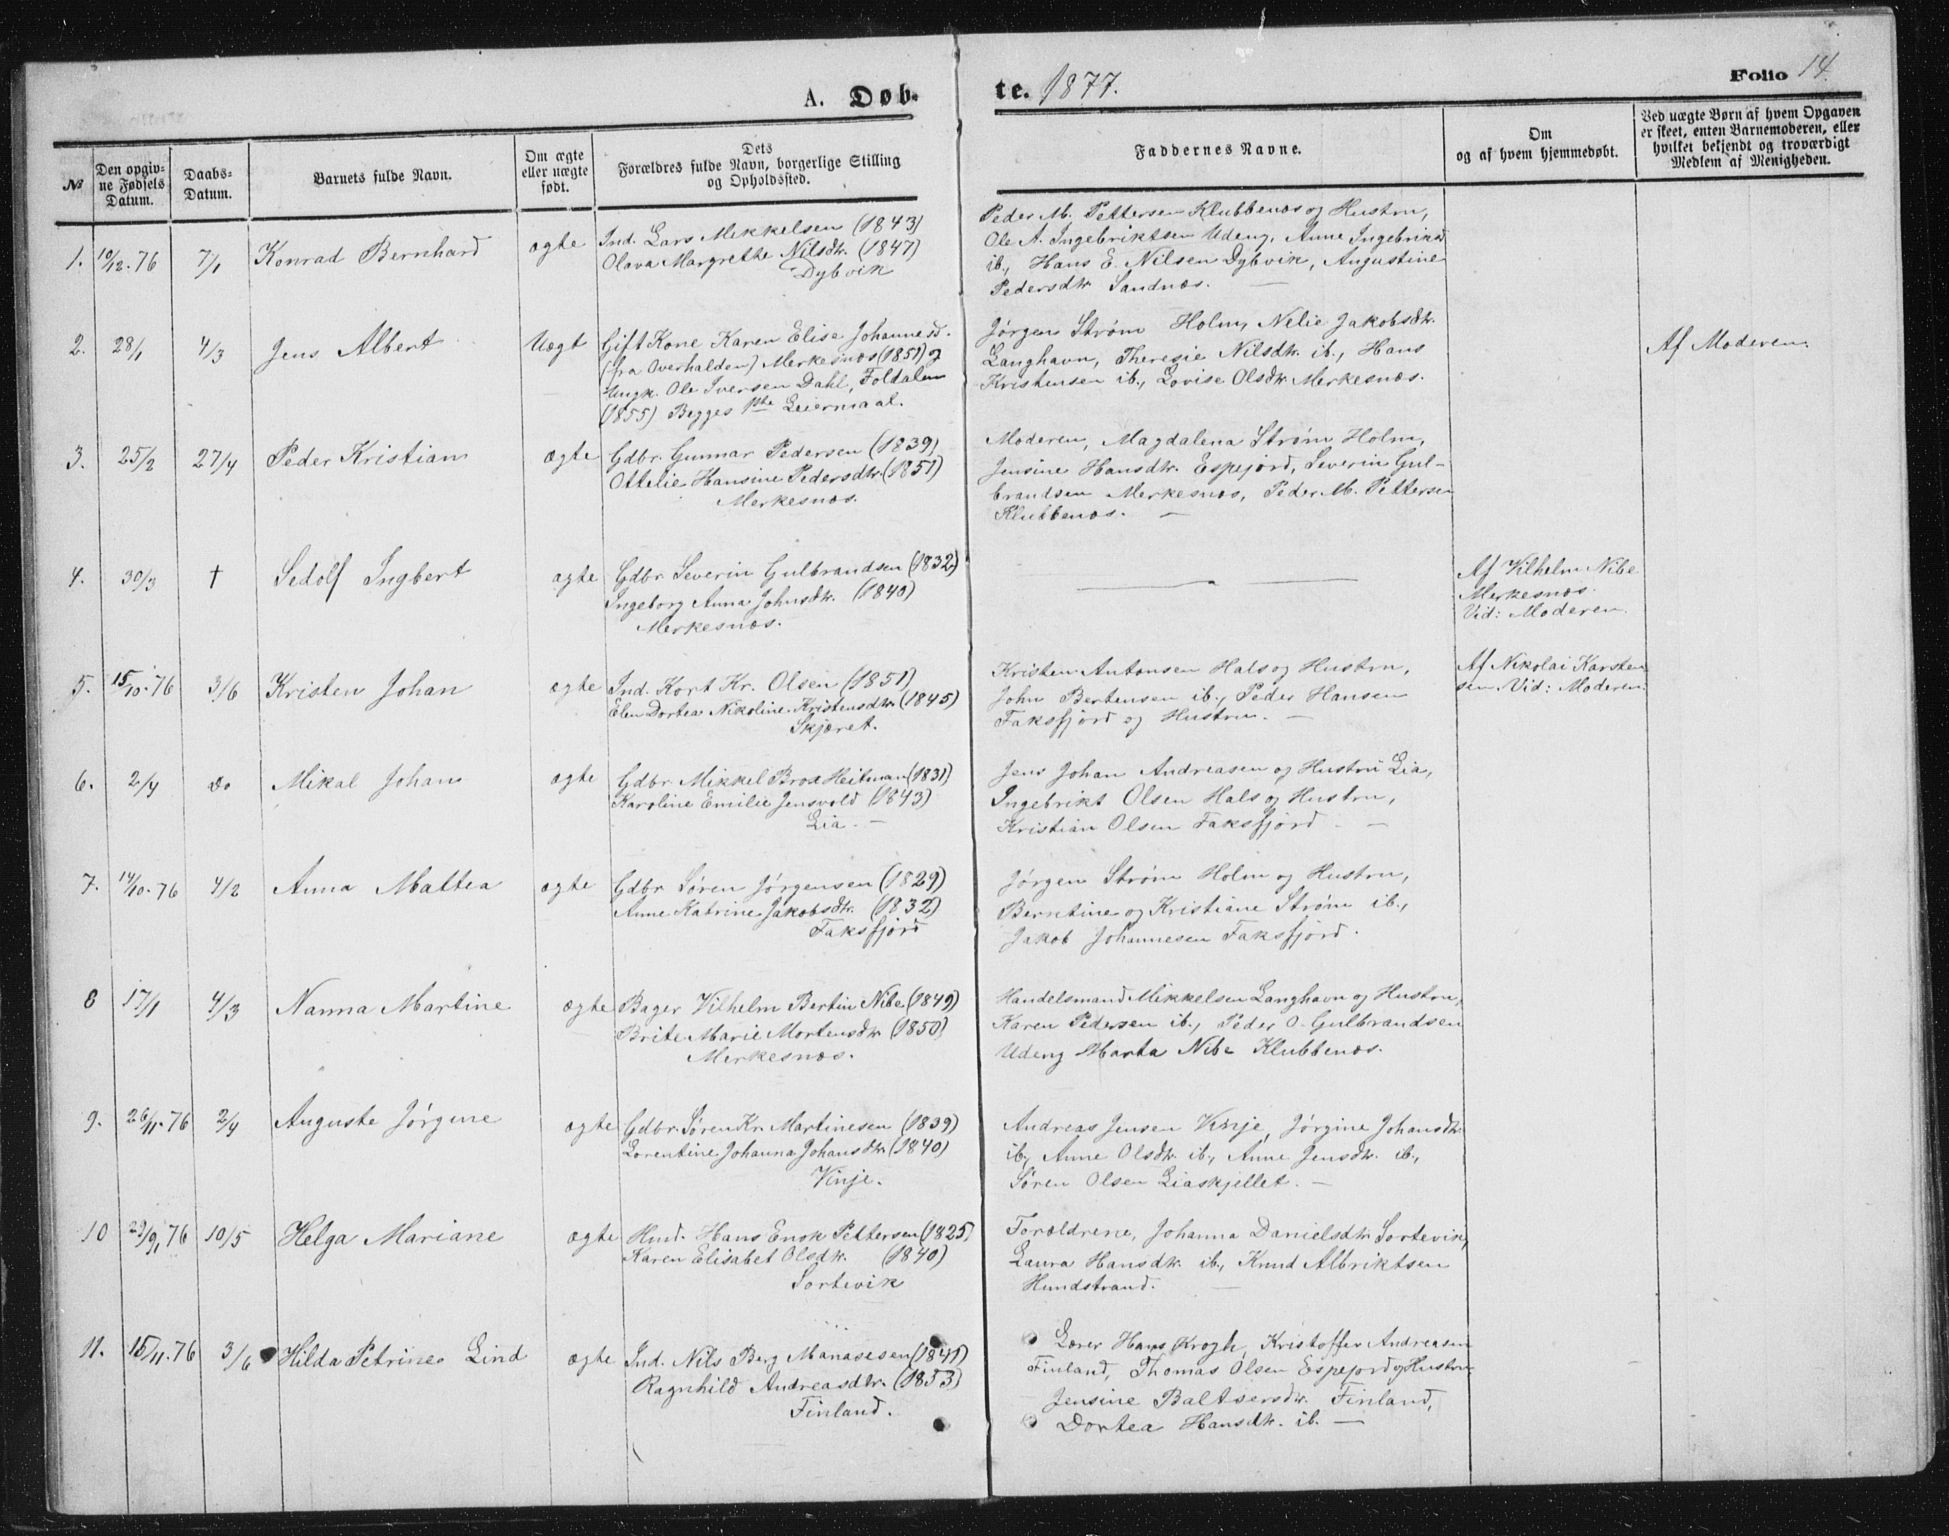 A. Døb-
te. 1877.
Folio 14.
№
Den opgiv-
ne Fødsels
Datum.
Daabs-
Datum.
Barnets fulde Navn.
Om ægte
eller uægte
født.
Dets
Forældres fulde Navn, borgerlige Stilling
og Opholdssted.
Faddernes Navne.
Om
og af hvem hjemmedøbt.
Ved uægte Børn af hvem Opgaven
er skeet, enten Barnemoderen, eller
hvilket bekjendt og troværdigt
Medlem af Menigheden.
1. 10/12. 76 7/1 Konrad Bernhard ægte
Ind. Lars Mikkelsen (1843)
Olava Margrethe Nilsdtr. (1847)
Dybvik
Peder M. Pettersen Klubbenæs og Hustru,
Ole A. Ingebriktsen Udeng, Anne Ingebriktsd
ib., Hans E. Nilsen Dybvik, Augustine
Pedersdtr Sandnæs.
2. 28/1 4/3 Jens Albert Uægt
Gift Kone Karen Elise Johannesd.
(fra Overhalden) Merkesnæs (1851) og
Ungk. Ole Iversen Dahl, Foldalen
(1855) Begges 1ste Leiermaal.
Jørgen Strøm Holm, Nelie Jakobsdtr.
Langhavn, Theresie Nilsdtr. ib., Hans
Kristensen ib., Lovise Olsdtr. Merkesnæs.
Af Moderen.
3. 25/2 27/4 Peder Kristian ægte
Gdbr. Gunnar Pedersen (1839)
Ottelie Hansine Pedersdtr. (1851)
Merkesnæs.
Moderen, Magdalena Strøm Holm,
Jensine Hansdtr. Espejord, Severin Gul-
brandsen Merkesnæs, Peder M. Pettersen
Klubbenæs. —
4. 30/3 † Sedolf Ingbert ægte
Gdbr Severin Gulbrandsen (1832)
Ingeborg Anna Johnsdtr. (1840)
Merkesnæs.
Af Vilhelm Nibe
Merkesnæs.
Vid: Moderen.
5. 15/10. 76 3/6 Kristen Johan ægte
Ind. Kort Kr. Olsen (1851)
Elen Dortea Nikoline Kristensdtr. (1845)
Skjæret.
Kristen Antonsen Hals og Hustru,
John Berntensen ib., Peder Hansen
Faksfjord og Hustru. —
Af Nikolai Karsten
sen. Vid: Moderen.
6. 2/4 Do Mikal Johan ægte
Gdbr. Mikkel Brox Heitman (1831)
Karoline Emilie Jensvold (1843)
Lia. —
Jens Johan Andreasen og Hustru Lia,
Ingebrikt Olsen Hals og Hustru,
Kristian Olsen Faksfjord. —
7. 14/10. 76 4/2 Anna Mattea ægte
Gdbr. Søren Jørgensen (1829)
Anne Katrine Jakobsdtr. (1832)
Faksfjord
Jørgen Strøm Holm og Hustru,
Berntine og Kristiane Strøm ib.,
Jakob Johannesen Faksfjord.
8 17/1 4/3 Nanna Martine ægte
Bager Vilhelm Bertin Nibe (1849)
Brite Marie Mortensdtr (1850)
Merkesnæs.
Handelsmand Mikkelsen Langhavn og Hustru,
Karen Pedersen ib., Peder O. Gulbrandsen
Udeng Marta Nibe Klubbenæs.
9. 26/11. 76 2/4 Auguste Jørgine ægte
Gdbr. Søren Kr. Martinesen (1839)
Lorentine Johanna Johansdtr. (1840)
Vinje.
Andreas Jensen Vinje, Jørgine Johansdtr.
ib., Anne Olsdtr. ib., Anne Jensdtr. ib.,
Søren Olsen Liaskjellet. —
10 29/9. 76 10/5 Helga Mariane ægte
Hmd. Hans Enok Pettersen (1825)
Karen Elisabet Olsdtr. (1840)
Sortevik
Forældrene, Johanna Danielsdtr. Sortevik,
Laura Hansdtr. ib., Knud Albriktsen
Hundstrand.
11. 15/11. 76 3/6 Hilda Petrine Lind ægte
Ind. Nils Berg Manasesen (1841)
Ragnhild Andreasdtr. (1853)
Finland.
Lærer Hans Krogh, Kristoffer Andreasen
Finland, Thomas Olsen Espejord og Hustru
Jensine Baltsersdtr. Finland,
Dortea Hansdtr. ib. —